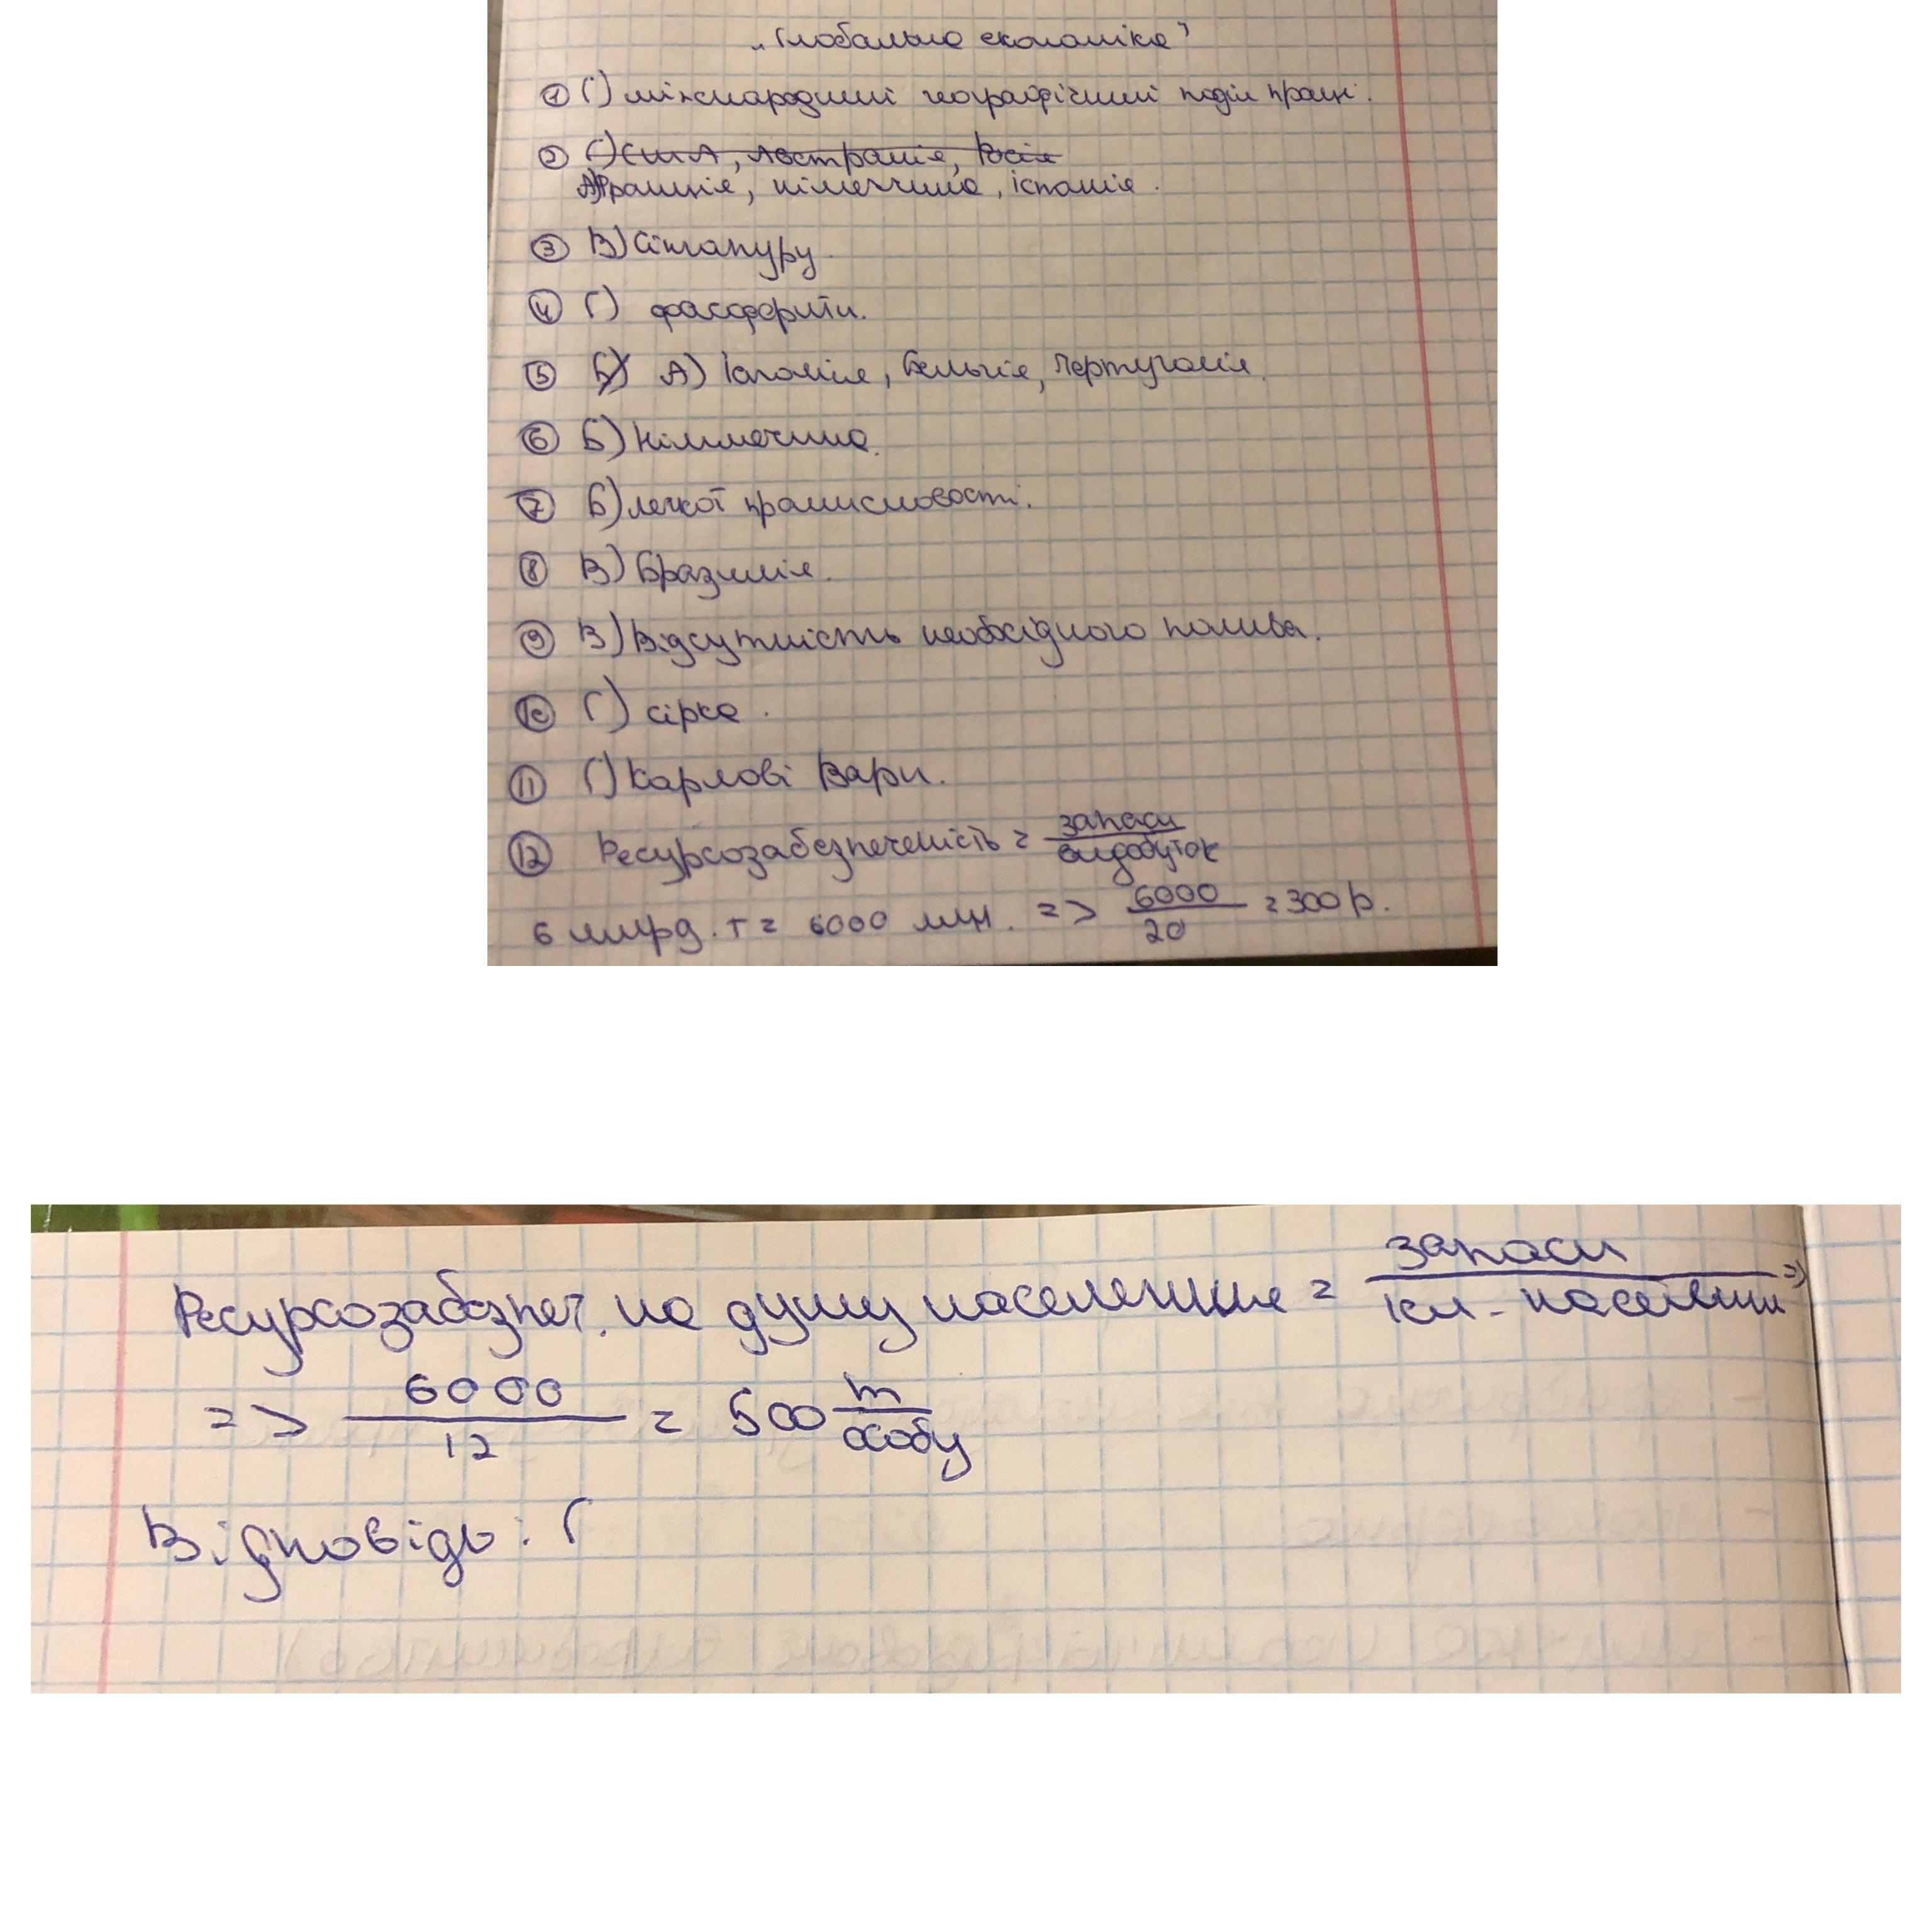 „Глобальна економіка"
① Г) міжнародний географічний поділ праці.
② Г) США, Австралія, Росія
А) Франція, німеччина, іспанія.
③ В) Сінгапуру.
④ Г) фосфорити.
⑤ Б) А) Іспанія, Бельгія, Португалія.
⑥ Б) Німмечина.
⑦ Б) легкої промисловості.
⑧ В) Бразилія.
⑨ В) Відсутність необхідного палива.
⑩ Г) сірка.
⑪ Г) Карлові Вари.
⑫ Ресурсозабезпеченість = запаси / видобуток
6 млрд. т = 6000 млн. => 6000 / 20 = 300 р.
Ресурсозабезпеч. на душу населення = запаси / кіл-населення =>
=> 6000 / 12 = 500 т / особу
Відповідь: Г